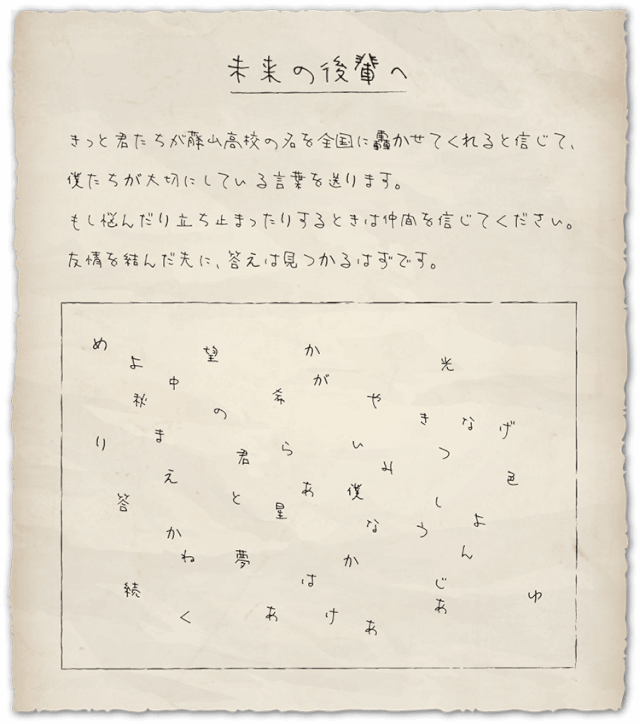 未来の後輩へ
きっと君たちが藤山高校の名を全国に轟かせてくれると信じて、
僕たちが大切にしている言葉を送ります。
もし悩んだり立ち止まったりするときは仲間を信じてください。
友情を結んだ先に、答えは見つかるはずです。
め よ 望 か 光
中 が
秋 希 や
の き な げ
り ま 君 ら い み つ
え 色
答 と 星 あ 僕 し
か な う よ
ね 夢 か ん
続 は じ ゆ
く あ け あ あ